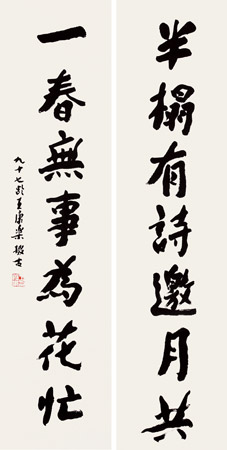 半榻有詩邀月共
一春無事為花忙
九十七齡王康樂